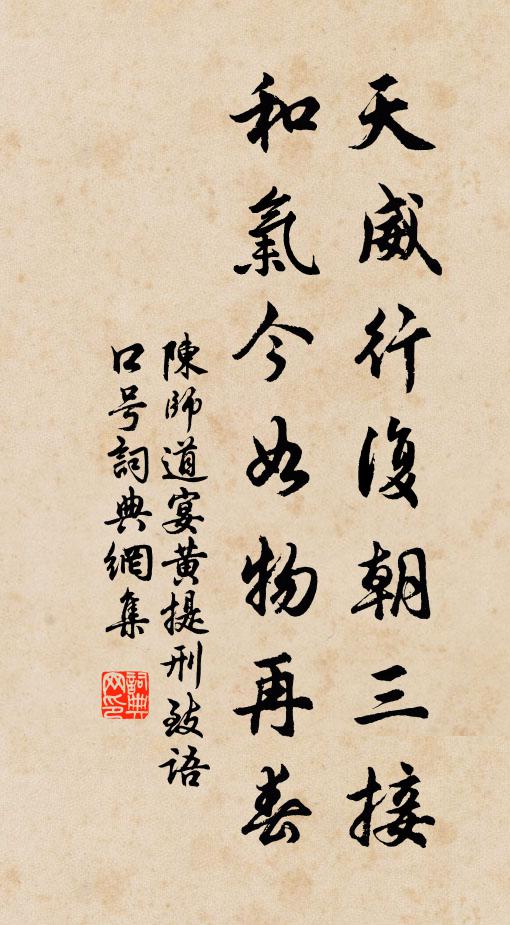 天威行復朝三接
和氣今如物再春
陳師道宴黄提刑致語
口号詞典網集
詞典
网印